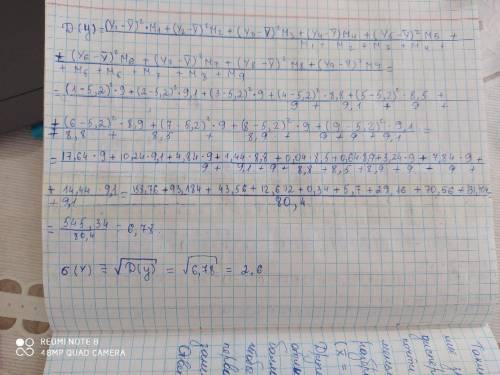 D(y)=(Y₁-V̅)²·M₁+(Y₂-V̅)²M₂+(Y₃-V̅)²M₃+(Y₄-V̅)M₄+(Y₅-V̅)²M₅+
M₁+M₂+M₃+M₄+
+(Y₆-V̅)²M₆+(Y₇-V̅)²M₇+(Y₈-V̅)²M₈+(Y₉-V̅)²M₉=
+M₅+M₆+M₇+M₈+M₉
=(1-5,2)²·9+(2-5,2)²·9,1+(3-5,2)²·9+(4-5,2)²·8,8+(5-5,2)²·8,5+
9+9,1+9+
+(6-5,2)²·8,9+(7-5,2)²·9+(8-5,2)²·9+(9-5,2)²·9,1=
+8,8+8,5+8,9+9+9+9,1
=17,64·9+10,24·9,1+4,84·9+1,44·8,8+0,04·8,5+0,64·8,9+3,24·9+7,84·9+
9+9,1+9+8,8+8,5+8,9+9+9+
+14,44·9,1=158,76+93,184+43,56+12,672+0,34+5,7+29,16+70,56+131,404=
+9,1 80,4
=545,34=6,78.
80,4
σ(Y)=√D(y)=√6,78=2,6
REDMI NOTE 8
48MP QUAD CAMERA